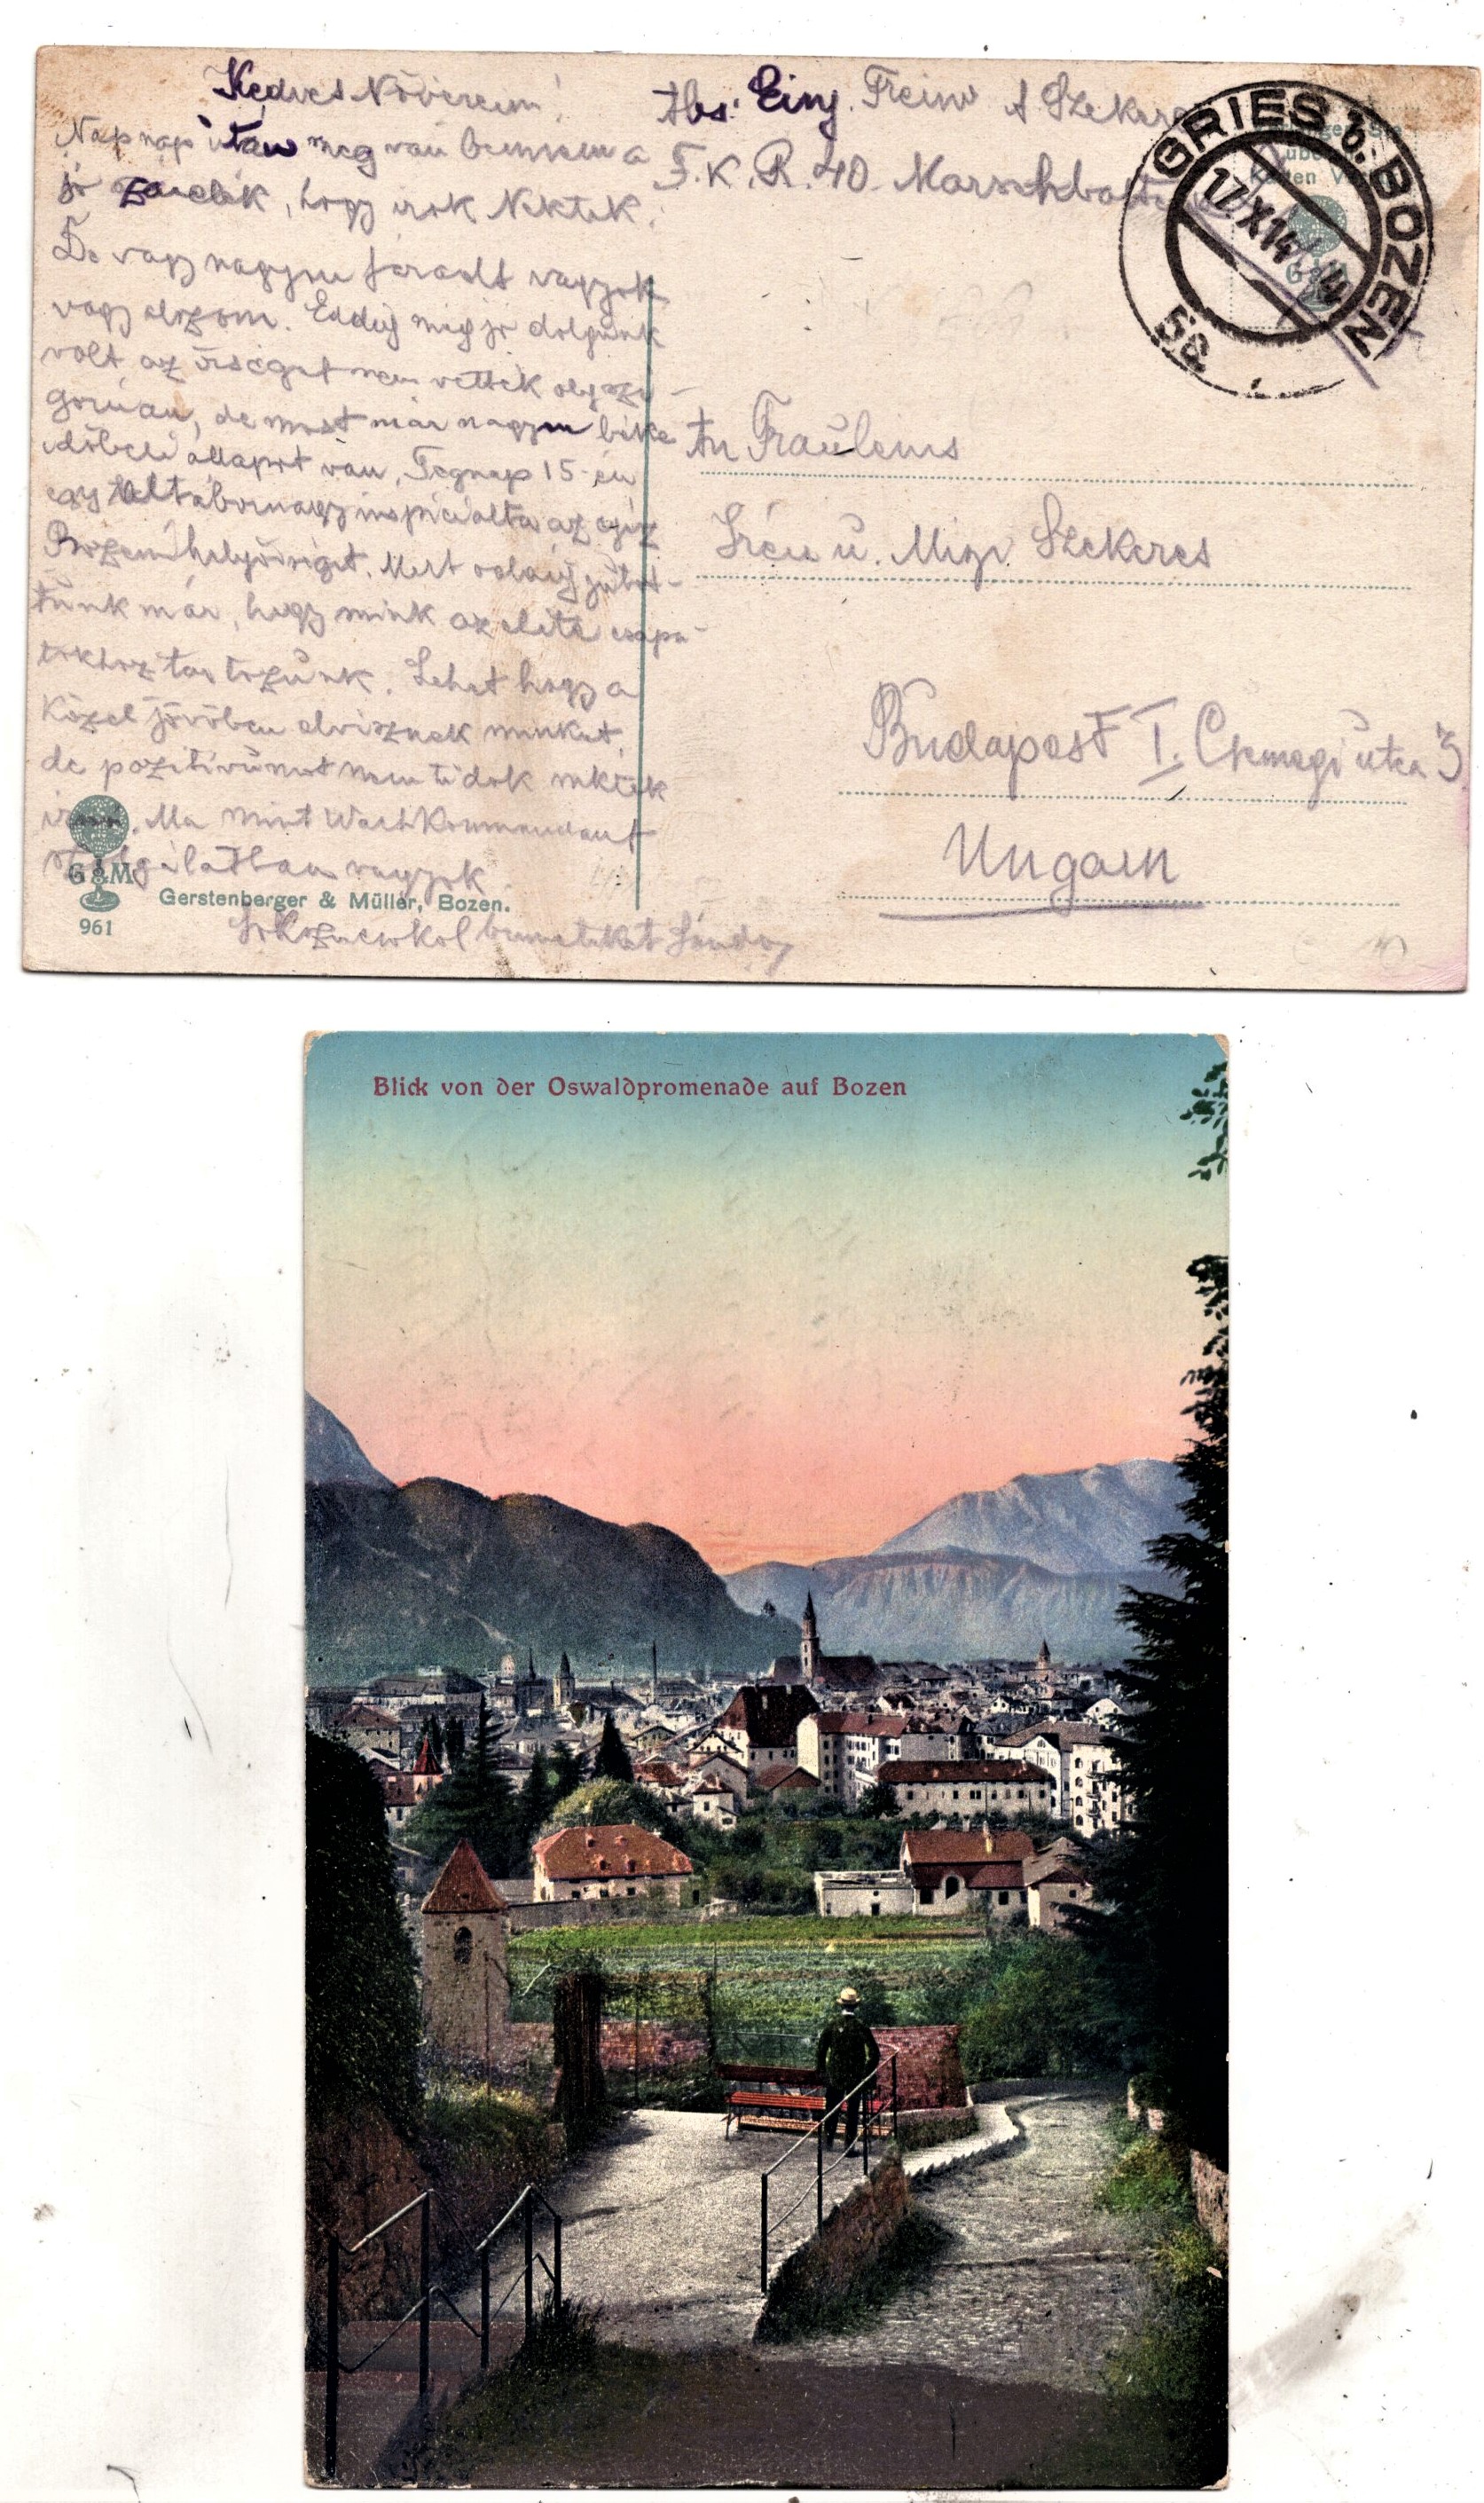 Kedves Nővereim!
Nap nap után meg van bennem a
jó szándék, hogy irok Nektek.
De vagy nagyon fáradt vagyok
vagy alszom. Eddig még jó dolgunk
volt az őrséget nem vették oly szi-
gorúan, de most már nagyon béke
időbeli állapot van. Tegnap 15-én
egy altábornagy inspiciálta az egész
Bozeni helyőrséget. Mert odáig jutot-
tunk már, hogy mink az elite csapa-
tokhoz tartozunk. Lehet hogy a
közel jövőben elvisznek minket,
de pozitivumot nem tudok nektek
irni. Ma mint Wachkommandant
szolgálatban vagyok
Sokszor csókol benneteket Sándor
G&M
961
Gerstenberger & Müller, Bozen.
Abs: Einj. Freiw A Szekeres
F.K.R. 40. Marschbatt
GRIES b. BOZEN
17.X.14
5a
An Fräuleins
Irén u. Mizi Szekeres
Budapest I. utca 3
Ungarn
Blick von der Oswaldpromenade auf Bozen